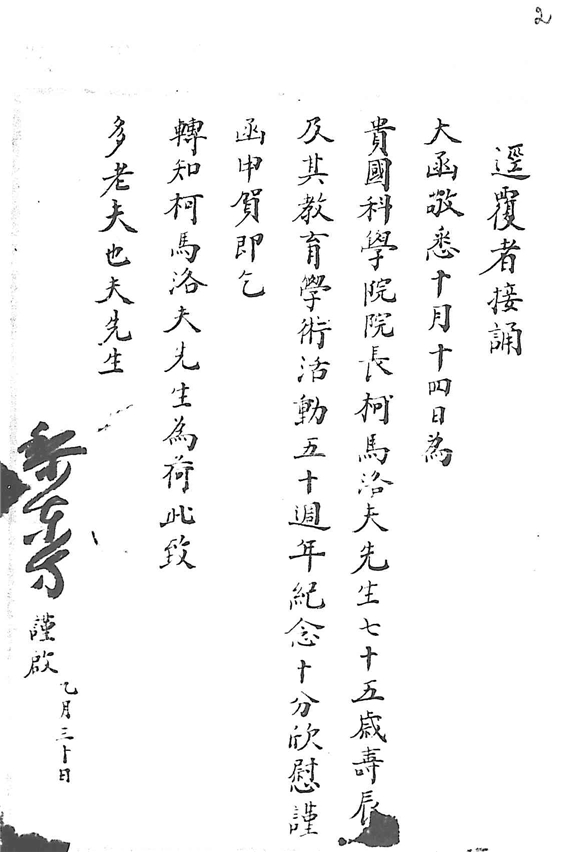 2
逕覆者接誦
大函敬悉十月十四日為
貴國科學院院長柯馬洛夫先生七十五歲壽辰
及其教育學術活動五十週年紀念十分欣慰謹
函申賀即乞
轉知柯馬洛夫先生為荷此致
多老夫也夫先生
謹啟
月三十日